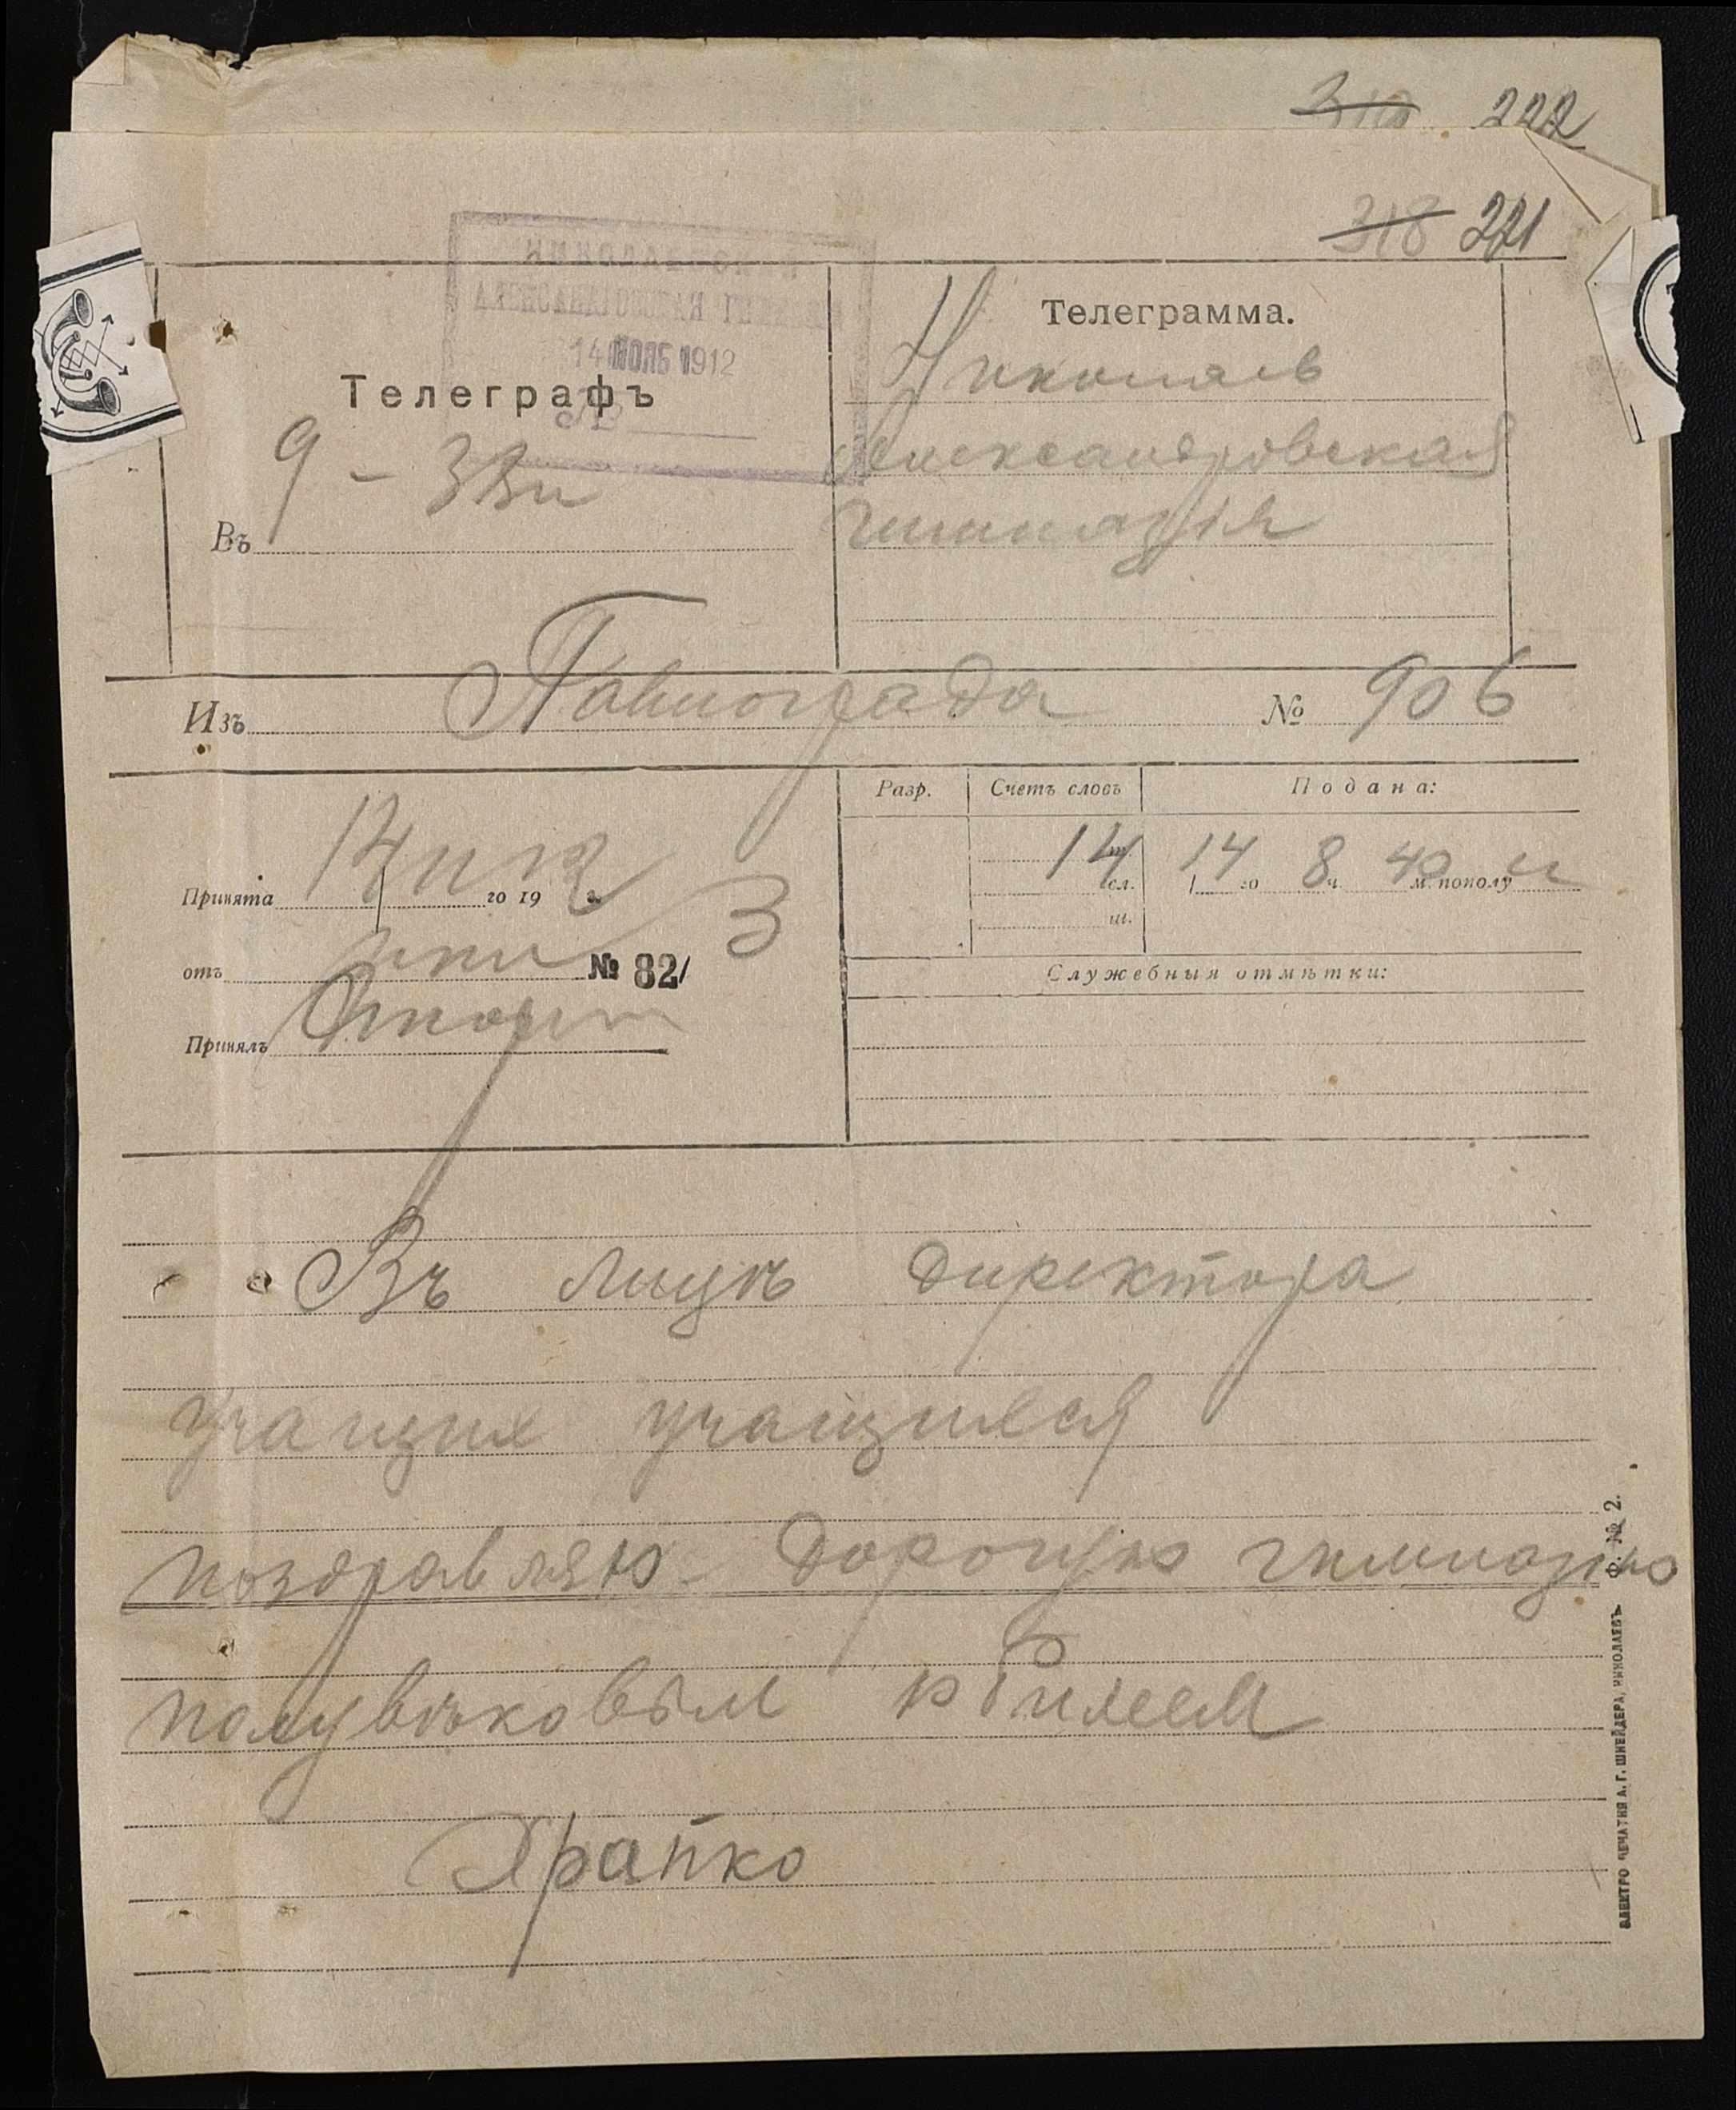 222
318 221
НИКОЛАЕВСКАЯ
АЛЕКСАНДРОВСКАЯ ГИМНАЗІЯ
14 НОЯБ 1912
№
Телеграфъ
9 - 33
Въ
Телеграмма.
Николаев
Александровская
гимназія
Изъ Павлограда № 906
Разр. Счетъ словъ Подана:
14 сл. 14 го 8 ч. 40 м. пополу
ш.
Принята 14 го 19 12 г.
отъ № 82/ 3
Принялъ
Служебныя отмѣтки:
Въ лицѣ директора
учащих учащихся
поздравляю дорогую гимназию
полувѣковым юбилеем
Храпко
Ф. № 2.
ЭЛЕКТРО ПЕЧАТНЯ А. Г. ШНЕЙДЕРА, НИКОЛАЕВЪ